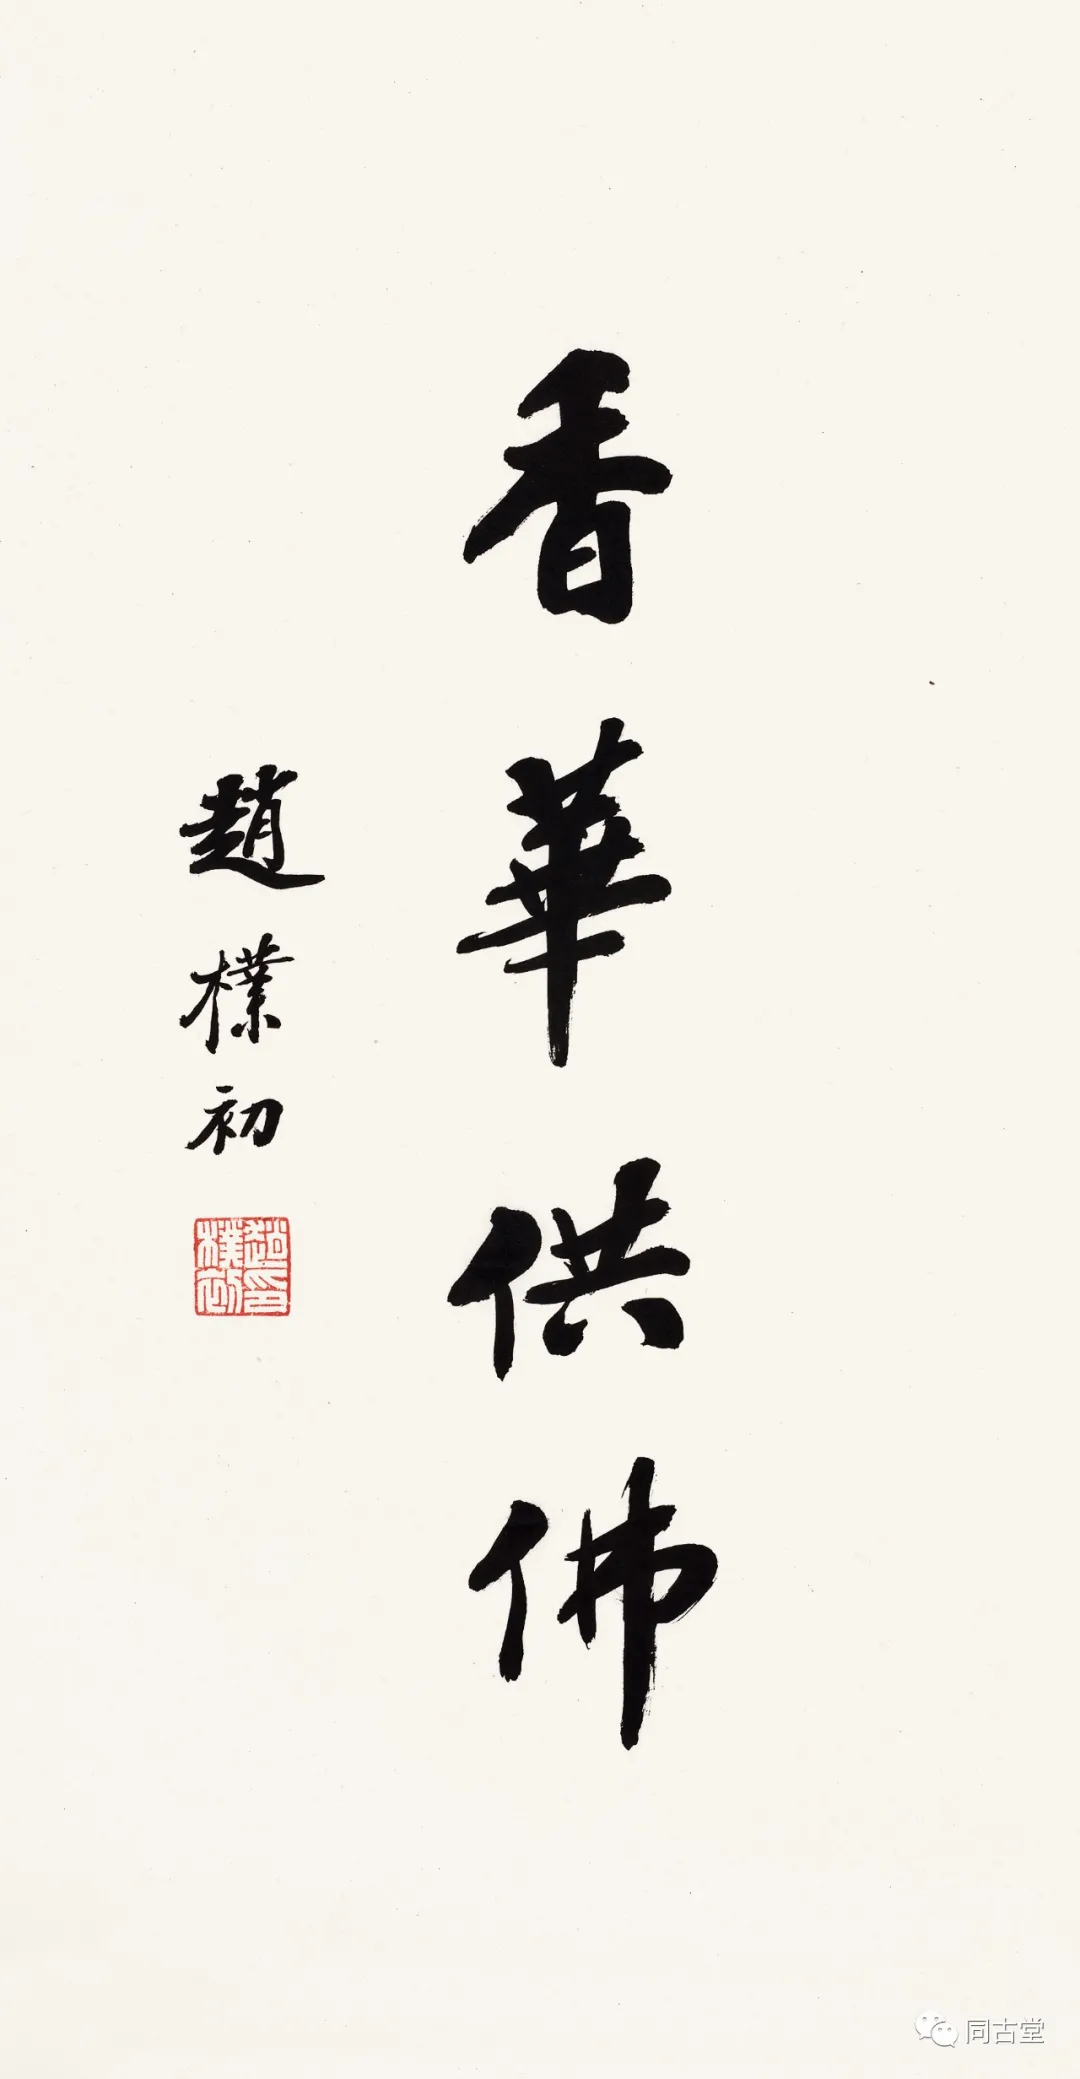 香華供佛
趙樸初
趙樸初印
同古堂